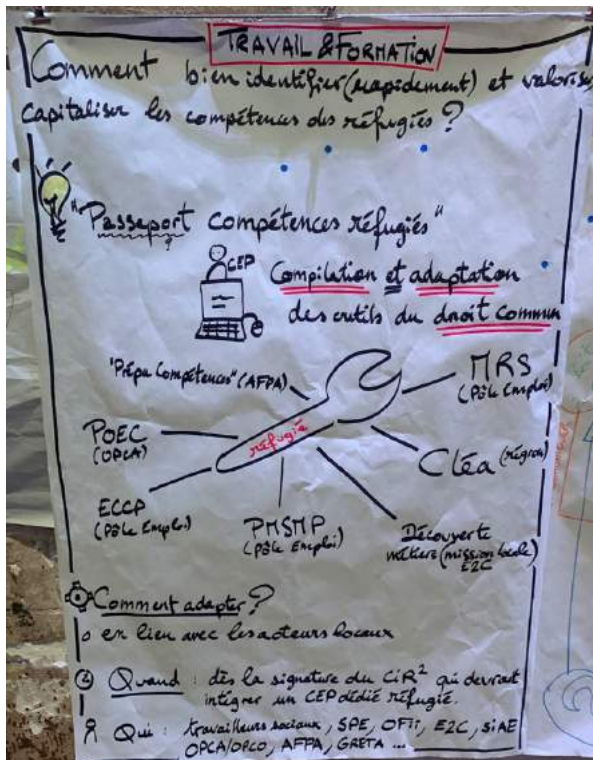 TRAVAIL & FORMATION
Comment bien identifier (rapidement) et valoriser,
capitaliser les compétences des réfugiés ?
"Passeport compétences réfugiés"
CEP
Compilation et adaptation
des outils du droit commun
"Prépa Compétences" (AFPA)
MRS
(Pôle Emploi)
POEC
(OPCA)
réfugié
Cléa (région)
ECCP
(Pôle Emploi)
PMSMP
(Pôle Emploi)
Découverte
métiers (mission locale)
E2C
Comment adapter ?
o en lien avec les acteurs locaux
Quand : dès la signature du CiR² qui devrait
intégrer un CEP dédié réfugié.
Qui : travailleurs sociaux, SPE, OFii, E2C, SiAE
OPCA/OPCO, AFPA, GRETA ...